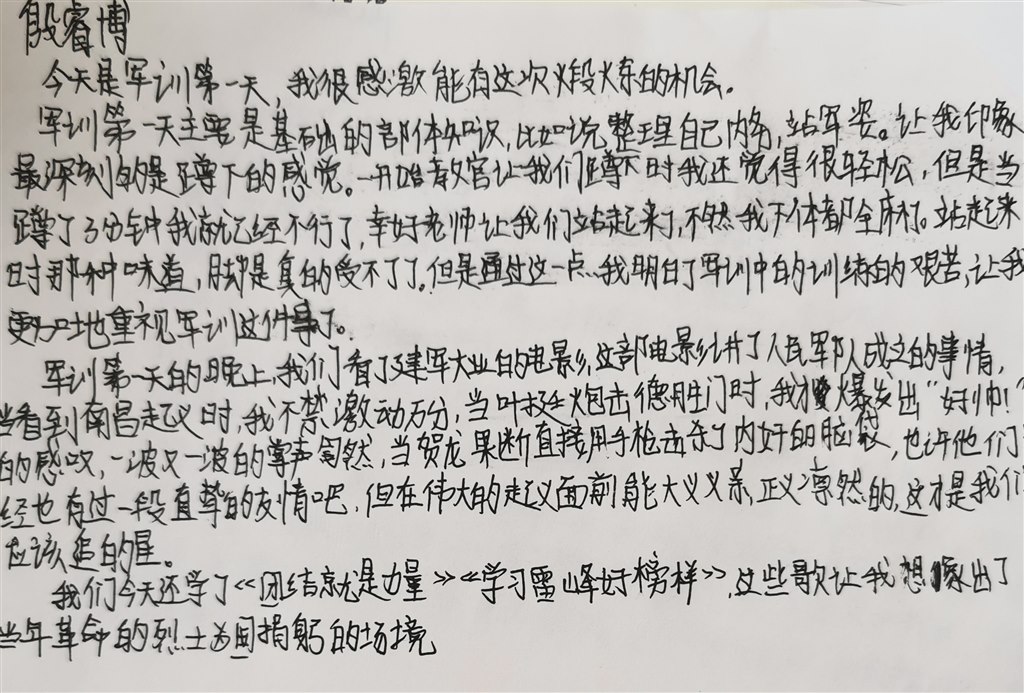 殷睿博
今天是军训第一天，我很感激能有这次火段火东的机会。
军训第一天主要是基础的部体知识，比如说整理自己内务，站军姿。让我印象
最深刻的是蹲下的感觉。一开始教官让我们蹲下时我还觉得很轻松，但是当
蹲了3分钟我就已经不行了，幸好老师让我们站起来了，不然我下体都全麻了。站起来
时那种味道，脚是真的受不了了。但是通过这一点，我明白了军训中的训练的艰苦，让我
更加地重视军训这件事了。
军训第一天的晚上，我们看了建军大业的电影，这部电影讲了人民军队成立的事情，
当看到南昌起义时，我不禁激动万分，当叶挺火炮击德胜门时，我才爆发出“好帅！”
的感叹，一波又一波的掌声轰然，当贺龙果断直接用手枪击杀了内奸的脑袋，也许他们
经也有过一段真挚的友情吧，但在伟大的起义面前能大义灭亲，正义凛然的，这才是我们
应该追的星。
我们今天还学了《团结就是力量》《学习雷峰好榜样》，这些歌让我想像出了
当年革命的烈士为国捐躯的场境